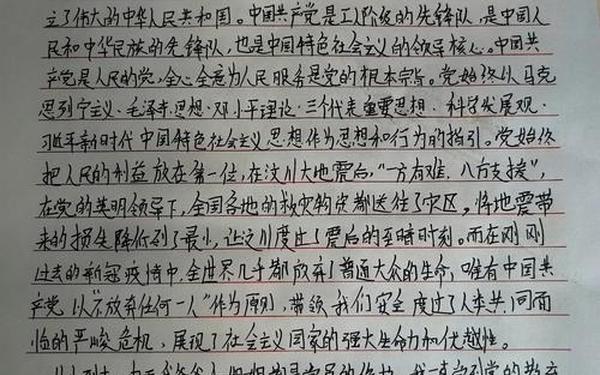 立了伟大的中华人民共和国。中国共产党是工人阶级的先锋队,是中国人
民和中华民族的先锋队,也是中国特色社会主义的领导核心。中国共
产党是人民的党,全心全意为人民服务是党的根本宗旨。党始终以马克
思列宁主义、毛泽东思想、邓小平理论、三个代表重要思想、科学发展观、
习近平新时代中国特色社会主义思想作为思想和行为的指引。党始终
把人民的利益放在第一位,在汶川大地震后,“一方有难,八方支援”,
在党的英明领导下,全国各地的救灾物资都送往了灾区,将地震带
来的损失降低到了最小,让汶川度过了震后的至暗时刻。而在刚刚
过去的新冠疫情中,全世界几乎都放弃了普通大众的生命,唯有中国共
产党以“不放弃任何一人”作为原则,带领我们安全度过了人类共同面
临的严峻危机,展现了社会主义国家的强大生命力和优越性。